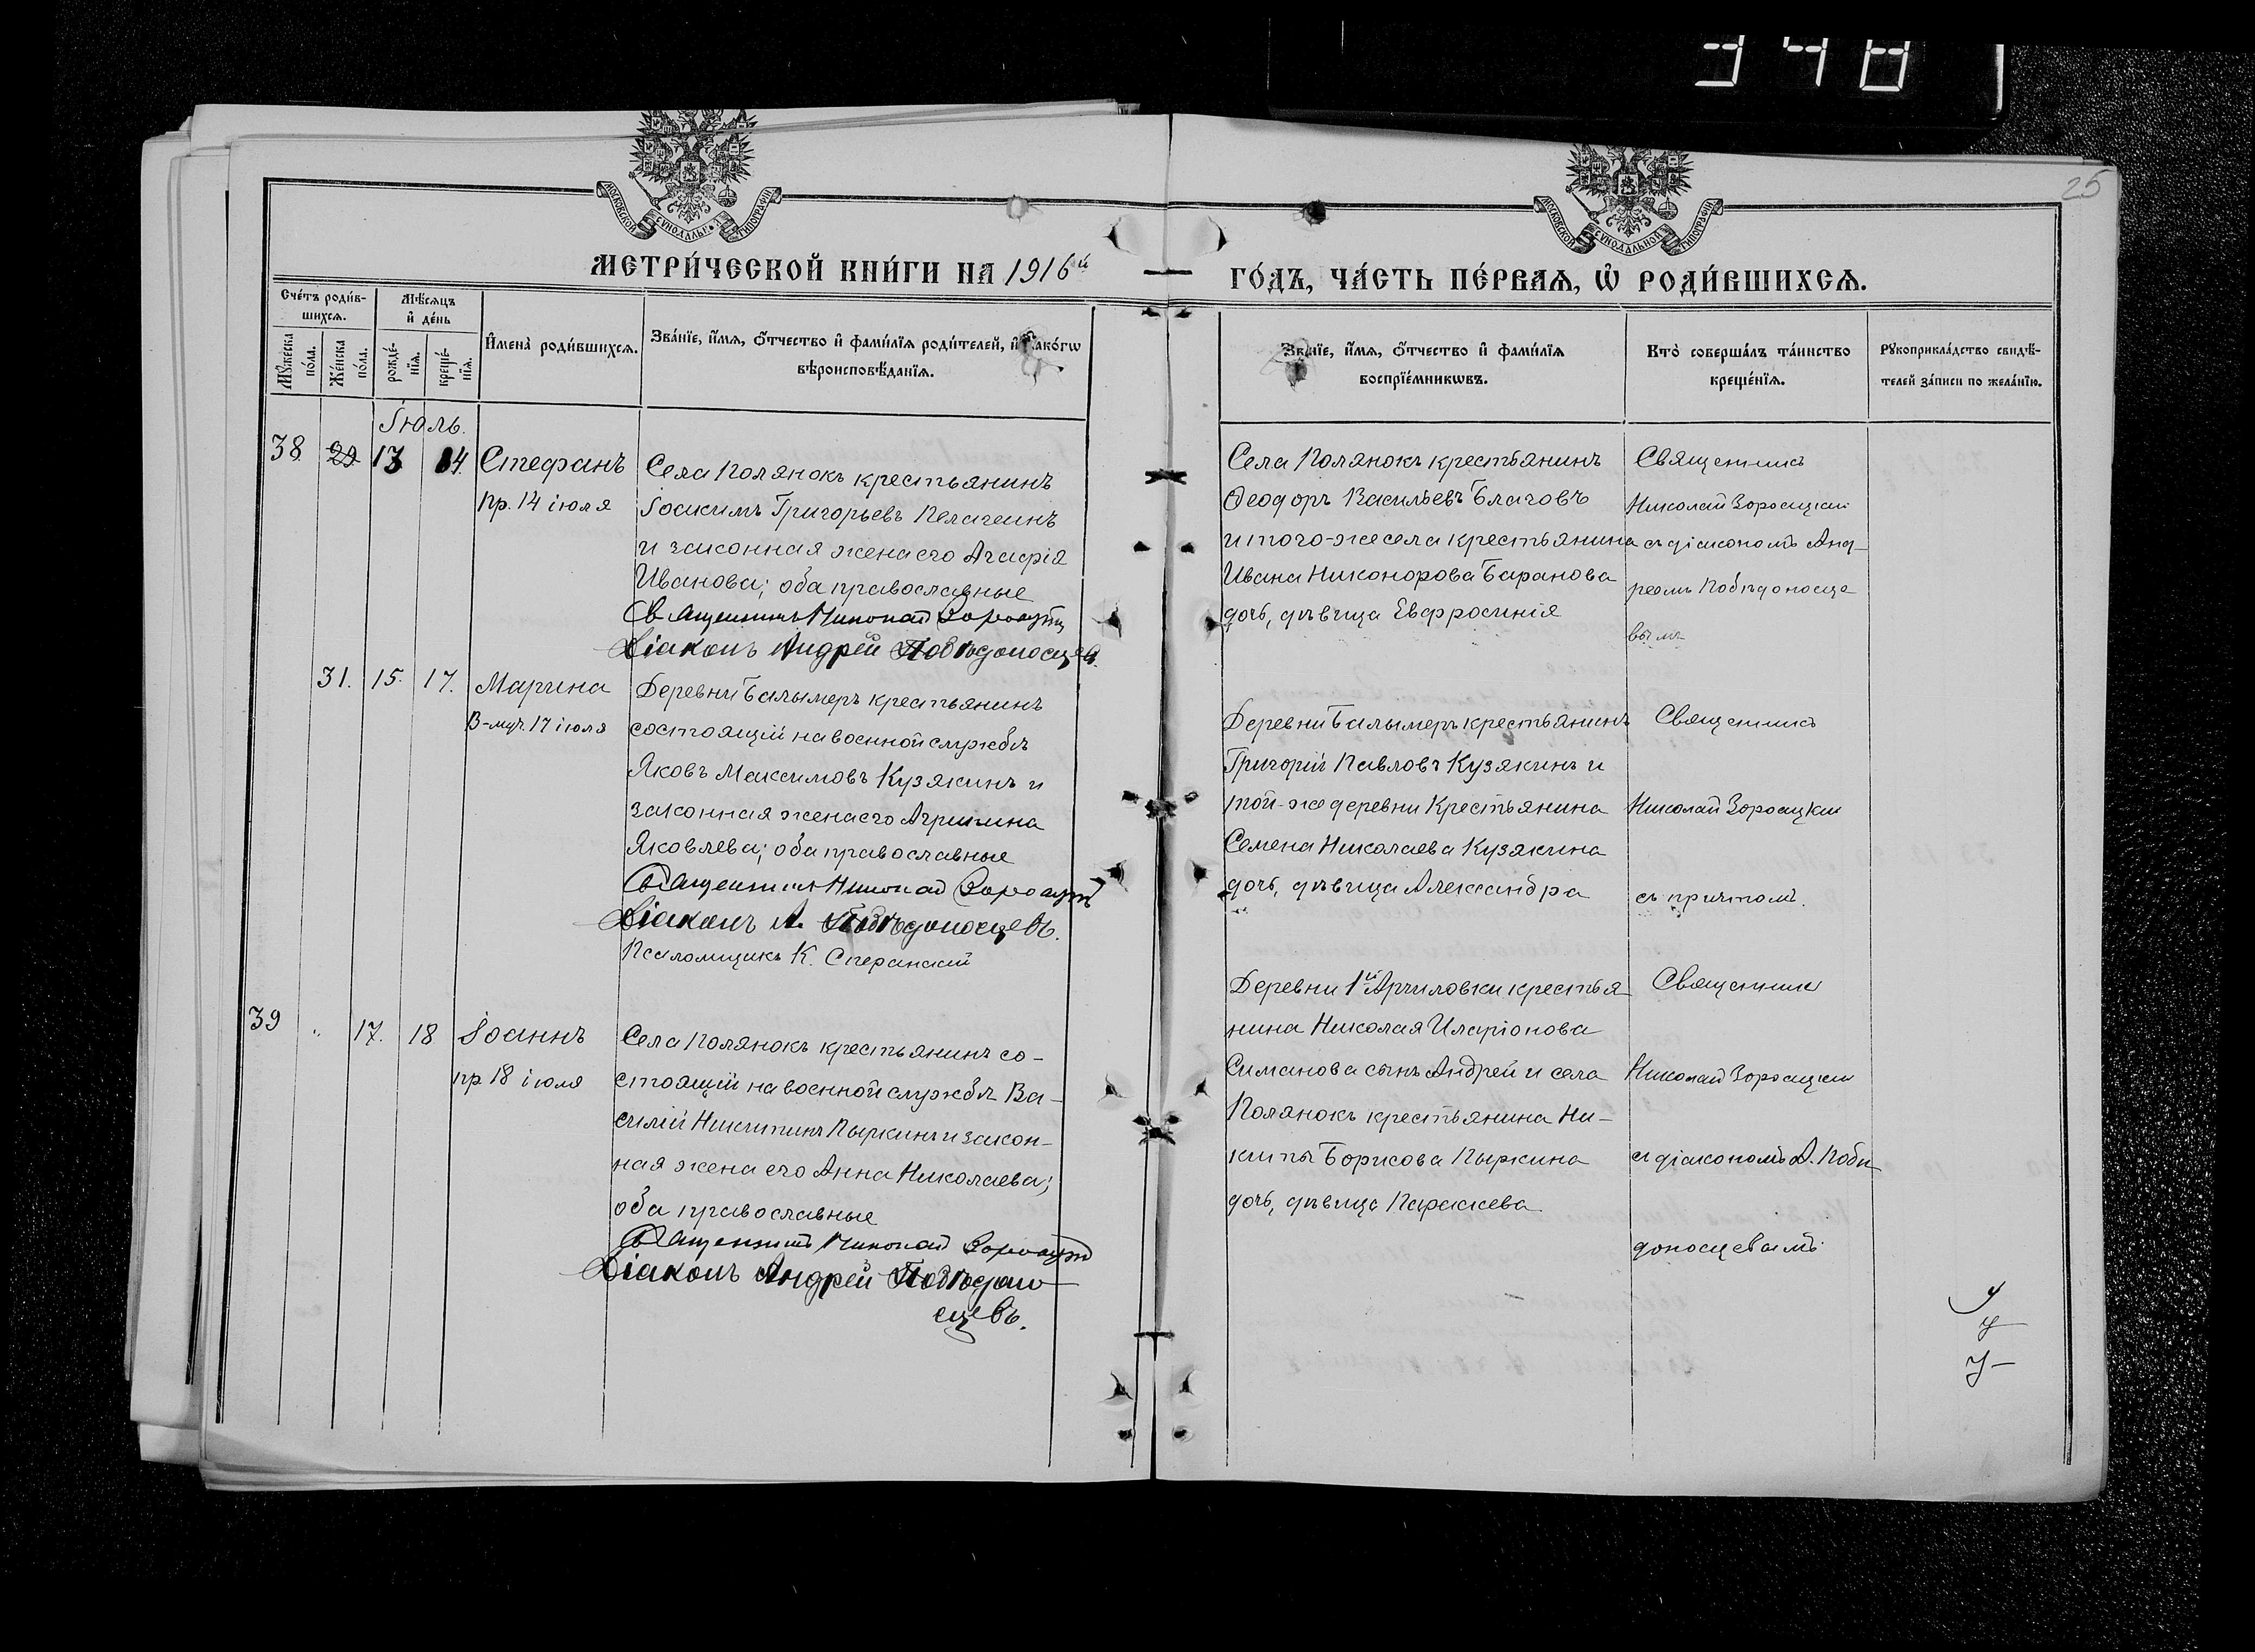 348
25
МОСКОВСКОЙ СУНОДАЛЬНОЙ ТИПОГРАФІИ
МОСКОВСКОЙ СУНОДАЛЬНОЙ ТИПОГРАФІИ
МЕТРИ́ЧЕСКОЙ КНИ́ГИ НА 1916й
ГО́ДЪ, ЧА́СТЬ ПЕ́РВАѦ, Ѡ҆ РОДИ́ВШИХСѦ.
Сче́тъ роди́в-
шихсѧ.
Мꙋ́жеска
по́ла.
Же́нска
по́ла.
Мѣ́сѧцъ
и҆ де́нь
рожде́-
нїѧ.
креще́-
нїѧ.
И҆мена̀ роди́вшихсѧ.
Зва́нїе, и҆́мѧ, ѻ҆́тчество и҆ фами́лїѧ роди́телей, и҆ како́гѡ
вѣроисповѣ́данїѧ.
Зва́нїе, и҆́мѧ, ѻ҆́тчество и҆ фами́лїѧ
воспрїе́мникѡвъ.
Кто̀ соверша́лъ та́инство
креще́нїѧ.
Рꙋкоприкла́дство свидѣ́-
телей за́писи по жела́нїю.
Іюль.
38 29 13 14 Стефанъ
пр. 14 іюля
Села Полянокъ крестьянинъ
Іоакимъ Григорьевъ Пелагеинъ
и законная жена его Агафія
Иванова; оба православные
Священникъ Николай
Діаконъ Андрей Побѣдоносцевъ.
Села Полянокъ крестьянинъ
Ѳеодоръ Васильевъ Благовъ
и того-же села крестьянина
Ивана Никонорова Баранова
дочь, дѣвица Евфросинія
Священникъ
Николай Зороацкій
съ діакономъ Анд-
реемъ Побѣдоносце
вымъ
31. 15. 17. Марина
В-муч. 17 іюля
Деревни Балымеръ крестьянинъ
состоящій на военной службѣ
Яковъ Максимовъ Кузякинъ и
законная жена его Агрипина
Яковлева; оба православные
Священникъ Николай
Діаконъ А. Побѣдоносцевъ.
Псаломщикъ К. Сперанскій
Деревни Балымеръ крестьянинъ
Григорій Павловъ Кузякинъ и
той-же деревни крестьянина
Семена Николаева Кузякина
дочь, дѣвица Александра
Священникъ
Николай Зороацкій
съ причтомъ.
39 " 17. 18 Іоаннъ
пр 18 іюля
Села Полянокъ крестьянинъ со-
стоящій на военной службѣ Ва-
силій Никитинъ Пыркинъ и закон-
ная жена его Анна Николаева;
оба православные
Священникъ Николай
Діаконъ Андрей Побѣдоно
сцевъ.
Деревни 1й Арчиловки крестья
нина Николая Иларіонова
Симанова сынъ Андрей и села
Полянокъ крестьянина Ни-
киты Борисова Пыркина
дочь, дѣвица Параскева
Священникъ
Николай Зороацкій
съ діакономъ А. Побѣ
доносцевымъ